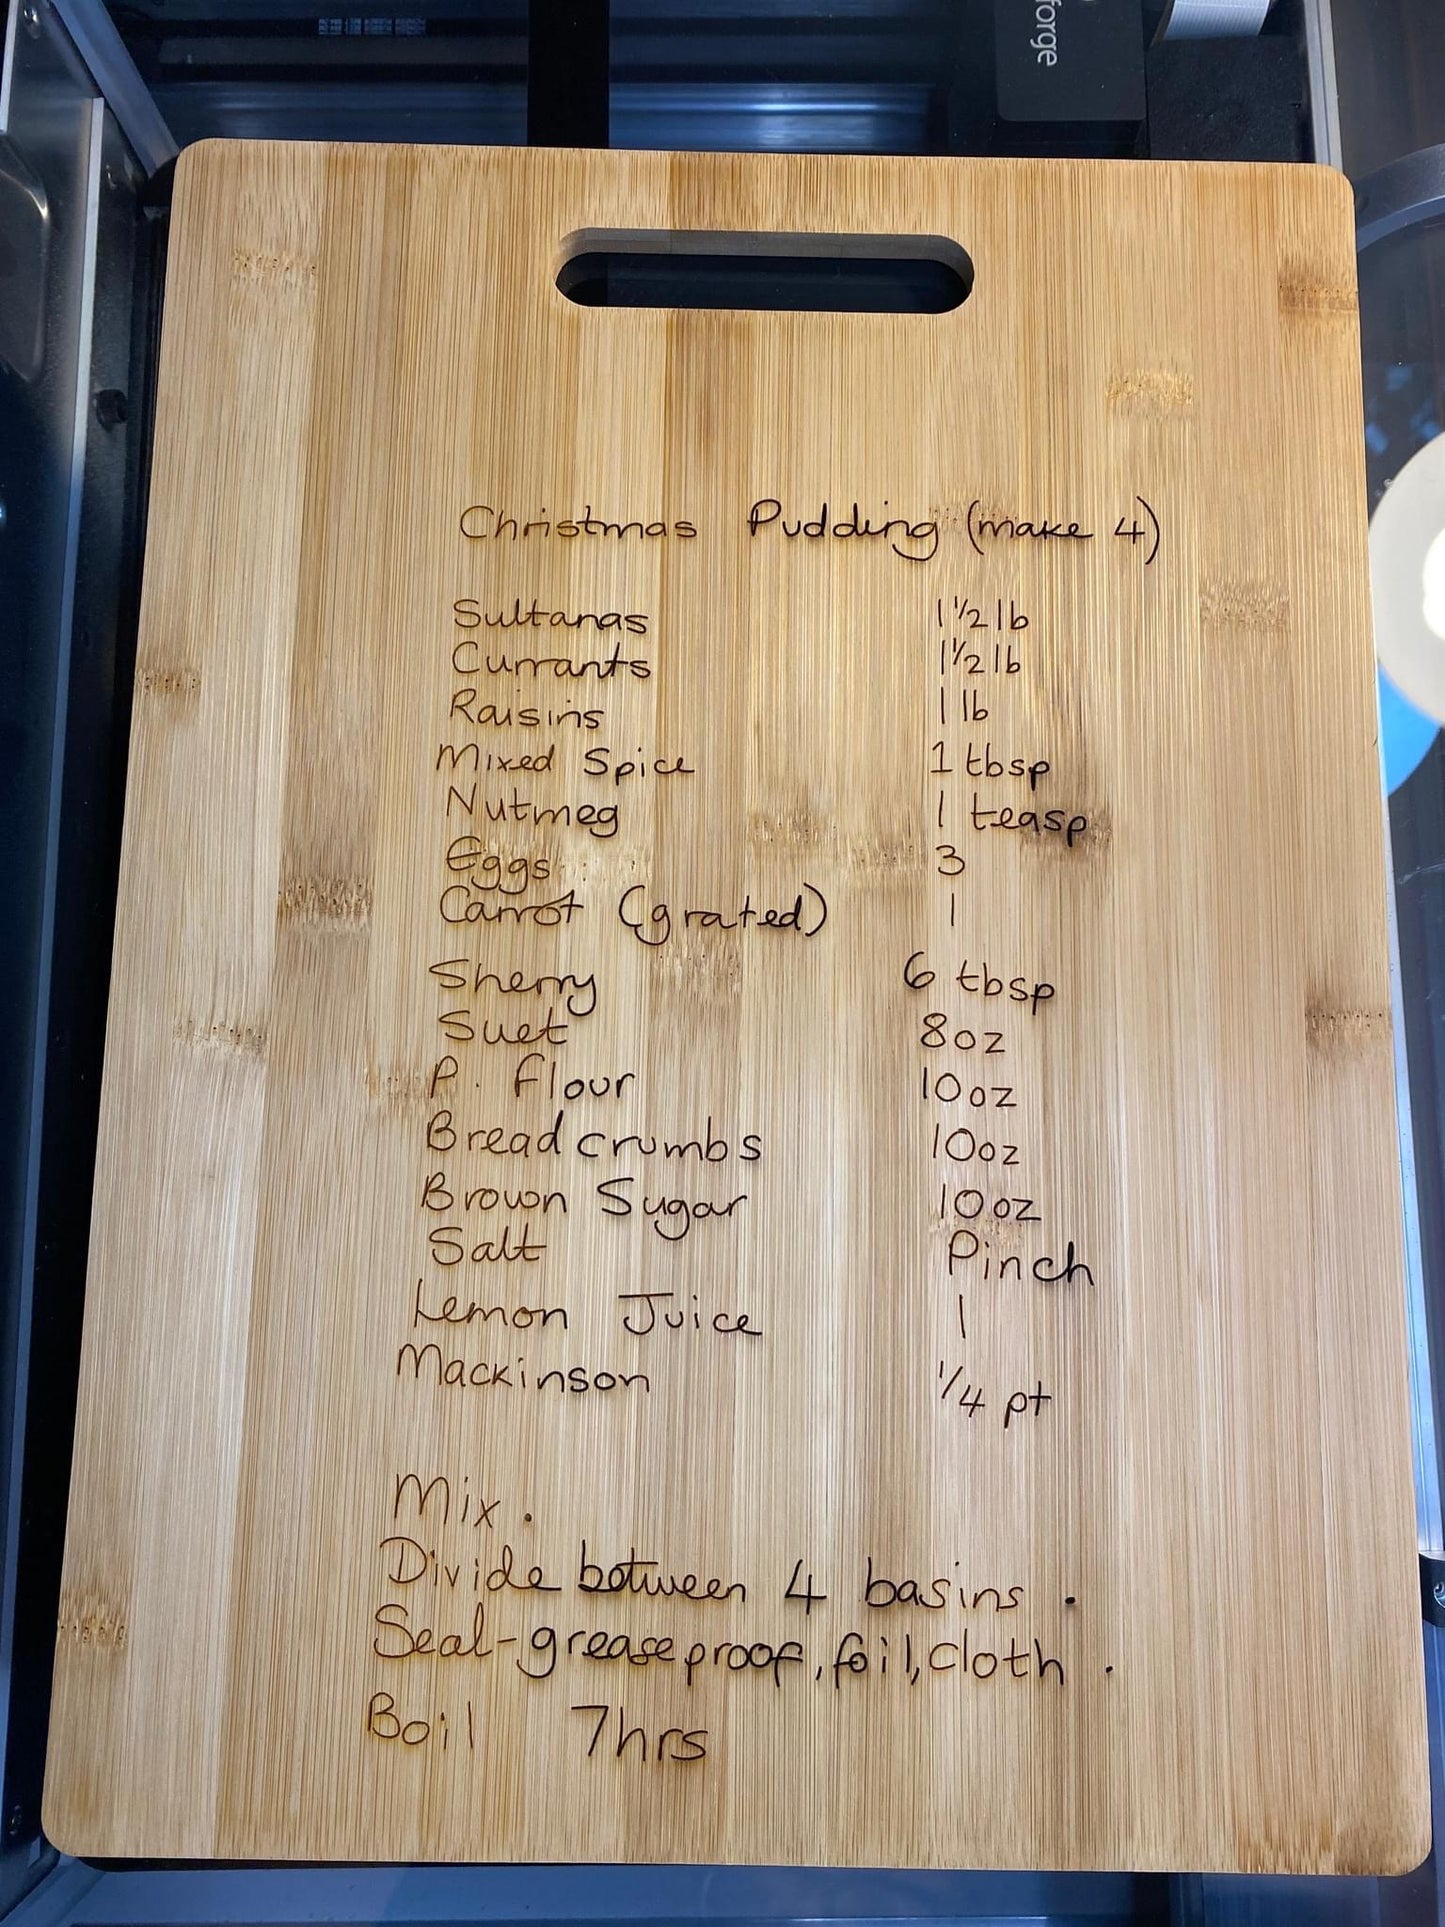 forge
Christmas Pudding (make 4)
Sultanas 1 1/2 lb
Currants 1 1/2 lb
Raisins 1 lb
Mixed Spice 1 tbsp
Nutmeg 1 teasp
Eggs 3
Carrot (grated) 1
Sherry 6 tbsp
Suet 8oz
P. flour 10oz
Breadcrumbs 10oz
Brown Sugar 10oz
Salt Pinch
Lemon Juice 1
Mackinson 1/4 pt
Mix.
Divide between 4 basins.
Seal-greaseproof, foil, cloth.
Boil 7hrs